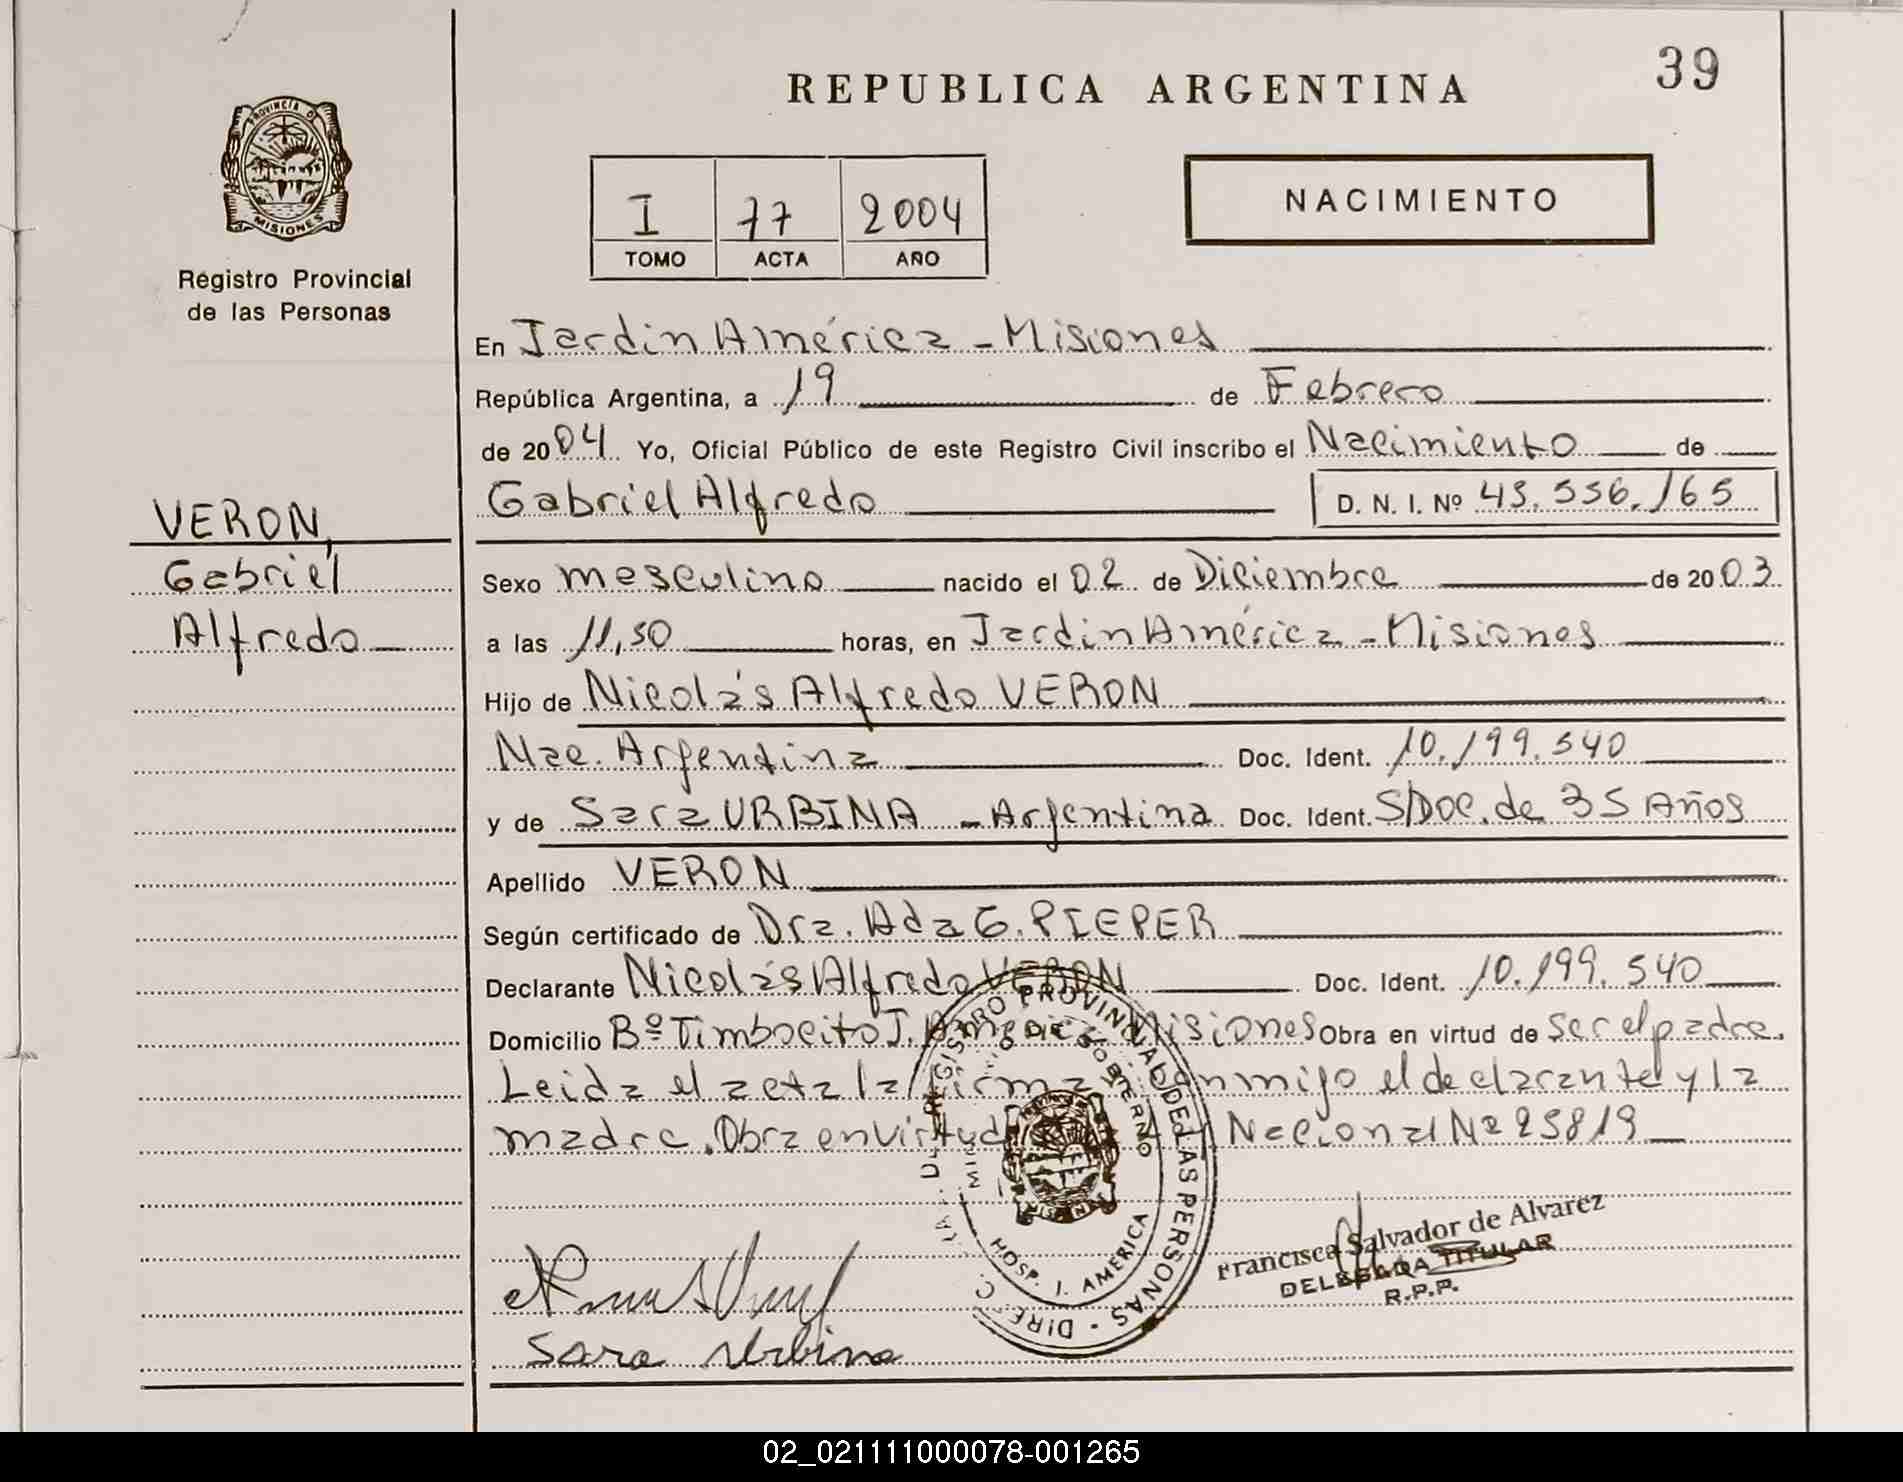 39
REPUBLICA ARGENTINA
PROVINCIA DE
MISIONES
Registro Provincial
de las Personas
I 77 2004
TOMO ACTA AÑO
NACIMIENTO
En Jardin América - Misiones
República Argentina, a 19 de Febrero
de 2004 Yo, Oficial Público de este Registro Civil inscribo el Nacimiento de
Gabriel Alfredo D. N. I. Nº 45.556.165
VERON,
Gabriel
Alfredo
Sexo masculino nacido el 02 de Diciembre de 2003
a las 11,50 horas, en Jardin América - Misiones
Hijo de Nicolás Alfredo VERON
Nac. Argentina Doc. Ident. 10.199.540
y de Sara URBINA - Argentina Doc. Ident. S/Doc. de 35 Años
Apellido VERON
Según certificado de Dra. Ada G. PIEPER
Declarante Nicolás Alfredo VERON Doc. Ident. 10.199.540
Domicilio Bº Timbocito J. America Misiones Obra en virtud de ser el padre.
Leida el acta la firma conmigo el declarante y la
madre. Obra en virtud Nacional Nº 25819
REGISTRO PROVINCIAL DE LAS PERSONAS - DIREC.
GOBIERNO
HOSP. J. AMERICA
Francisca Salvador de Alvarez
DELEGADA TITULAR
R.P.P.
Sara Urbina
02_021111000078-001265